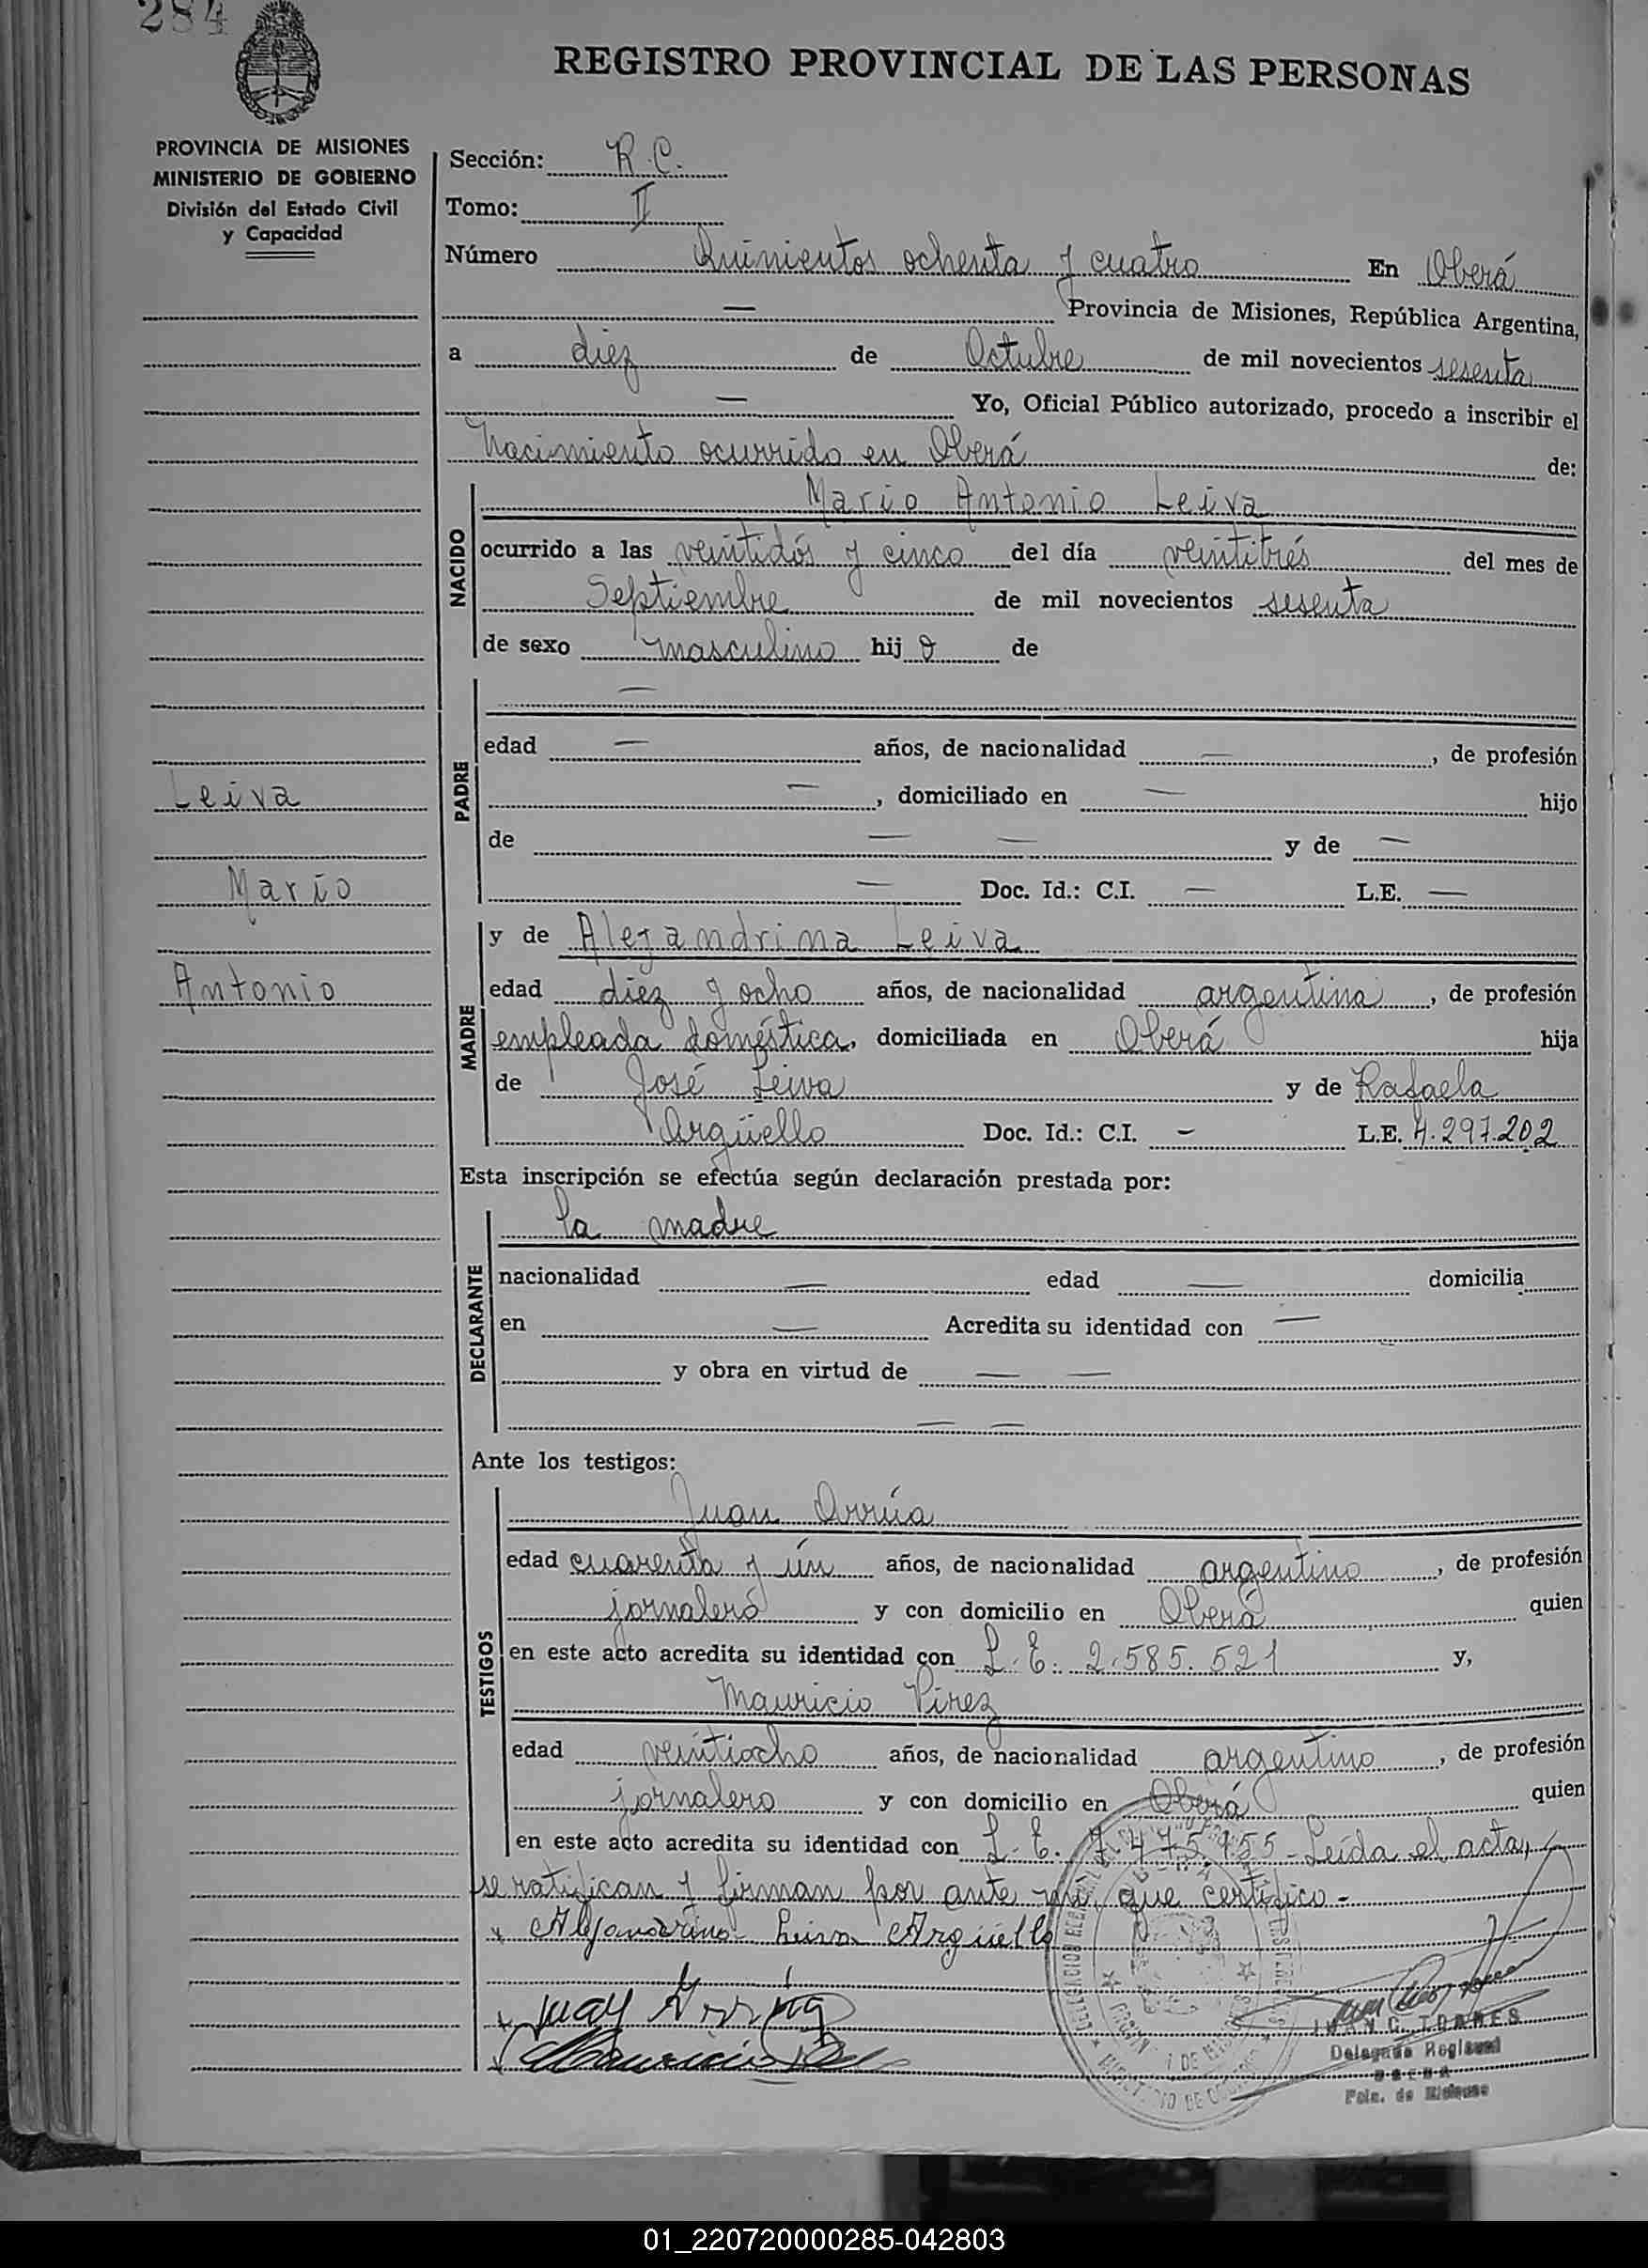 284
REGISTRO PROVINCIAL DE LAS PERSONAS
PROVINCIA DE MISIONES
MINISTERIO DE GOBIERNO
División del Estado Civil
y Capacidad
Sección: R.C.
Tomo: II
Número Quinientos ochenta y cuatro En Oberá
— Provincia de Misiones, República Argentina,
a diez de Octubre de mil novecientos sesenta
— Yo, Oficial Público autorizado, procedo a inscribir el
Nacimiento ocurrido en Oberá de:
NACIDO
Mario Antonio Leiva
ocurrido a las veintidós y cinco del día veintitrés del mes de
Septiembre de mil novecientos sesenta
de sexo masculino hijo de
PADRE
—
edad — años, de nacionalidad — , de profesión
— , domiciliado en — hijo
de — — y de —
— Doc. Id.: C.I. — L.E. —
Leiva
Mario
Antonio
MADRE
y de Alejandrina Leiva
edad diez y ocho años, de nacionalidad argentina , de profesión
empleada doméstica, domiciliada en Oberá hija
de José Leiva y de Rafaela
Argüello Doc. Id.: C.I. — L.E. 4.297.202
Esta inscripción se efectúa según declaración prestada por:
DECLARANTE
la madre
nacionalidad — edad — domicilia
en — Acredita su identidad con —
y obra en virtud de — —
— —
Ante los testigos:
TESTIGOS
Juan Orrúa
edad cuarenta y ún años, de nacionalidad argentino , de profesión
jornalero y con domicilio en Oberá quien
en este acto acredita su identidad con L.E. 2.585.521 y,
Mauricio Pirez
edad veintiocho años, de nacionalidad argentino , de profesión
jornalero y con domicilio en Oberá quien
en este acto acredita su identidad con L.E. 7.475.955 - Leída el acta,
se ratifican y firman por ante mí, que certifico -
Alejandrina Leiva Argüello
Juan
Mauricio
JUAN C. TORRES
Delegado Regional
OBERA
Pcia. de Misiones
01_220720000285-042803